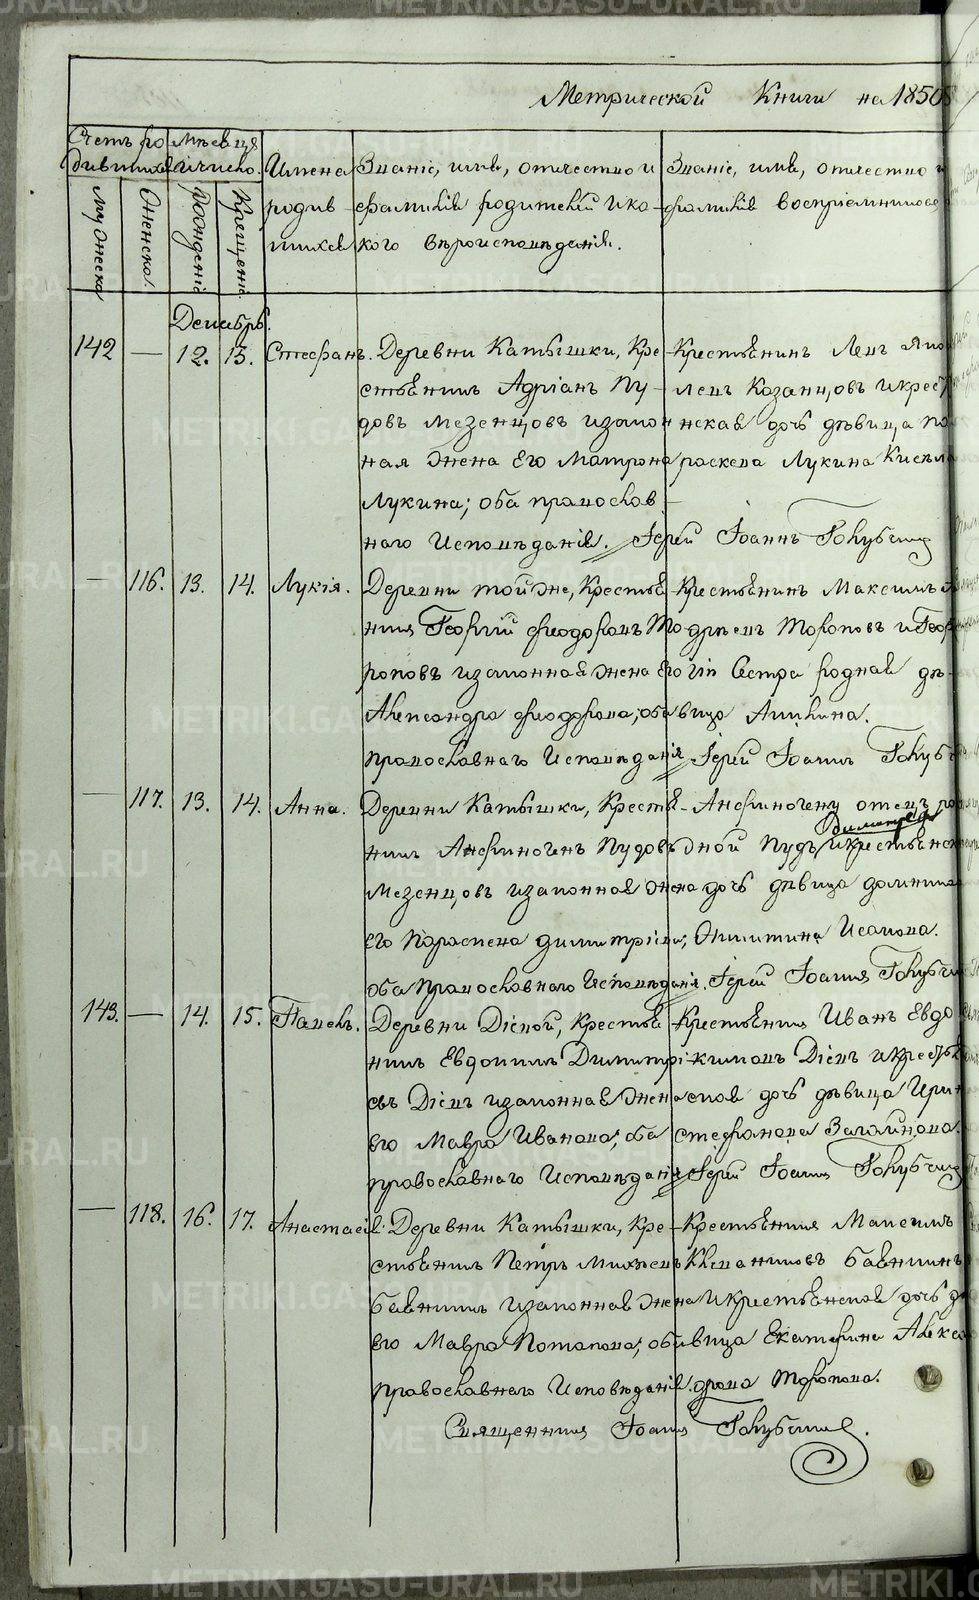 Метрической Книги на 1850
Счетъ ро
дившихся
Мѣсяцъ
и число.
Имена
родив
шихся
Званіе, имя, отчество и
фамилія родителей и ка-
кого вѣроисповѣданія.
Званіе, имя, отчество и
фамилія воспріемниковъ
Мужеска
Женска.
Рожденіе
Крещеніе
Декабрь.
142 — 12. 13. Стефанъ.
Деревни Катышки, Кре-
стьянинъ Адріанъ Пу-
довъ Мезенцовъ и закон
ная жена его Матрона
Лукина; оба православ-
наго Исповѣданія.
Крестьянинъ
Казанцовъ и крест
нская дочь дѣвица Па
раскева Лукина
Іерей Іоаннъ Голубчик
— 116. 13. 14. Лукія.
Деревни той же, Крестья
нинъ Георгій Феодоровъ То-
роповъ и законная жена его
Александра Феодорова; оба
православнаго Исповѣданія
Крестьянинъ Максимъ
Тороповъ и Геор
гія Сестра родная дѣ-
вица Акилина.
Іерей Іоаннъ Голубч
— 117. 13. 14. Анна.
Деревни Катышки, Крестья-
нинъ Анфиногенъ Пудовъ
Мезенцовъ и законная жена
его Параскева Димитріева;
оба Православнаго Исповѣданія.
Анфиногену отецъ ро
дной Пудъ и крестьянск
дочь дѣвица Домника
Никитина Исакова.
Іерей Іоаннъ Голубчи
143. — 14. 15. Павелъ.
Деревни Діевой, Крестья
нинъ Евдокимъ Димитрі-
евъ Діевъ и законная жена
его Мавра Иванова; оба
православнаго Исповѣданія
Крестьянинъ Иванъ Евдо
кимовъ Діевъ и крестья
нская дочь дѣвица Ирин
Стефанова
Іерей Іоаннъ Голубчик
— 118. 16. 17. Анастасія.
Деревни Катышки, Кре-
стьянинъ Петръ Михѣевъ
Бабкинъ и законная жена
его Мавра Потапова; оба
православнаго Исповѣданія.
Крестьянинъ Максимъ
и крестьянская дочь дѣ
вица Екатерина Алекса
ндрова Торопова.
Священникъ Іоаннъ Голубчиков.